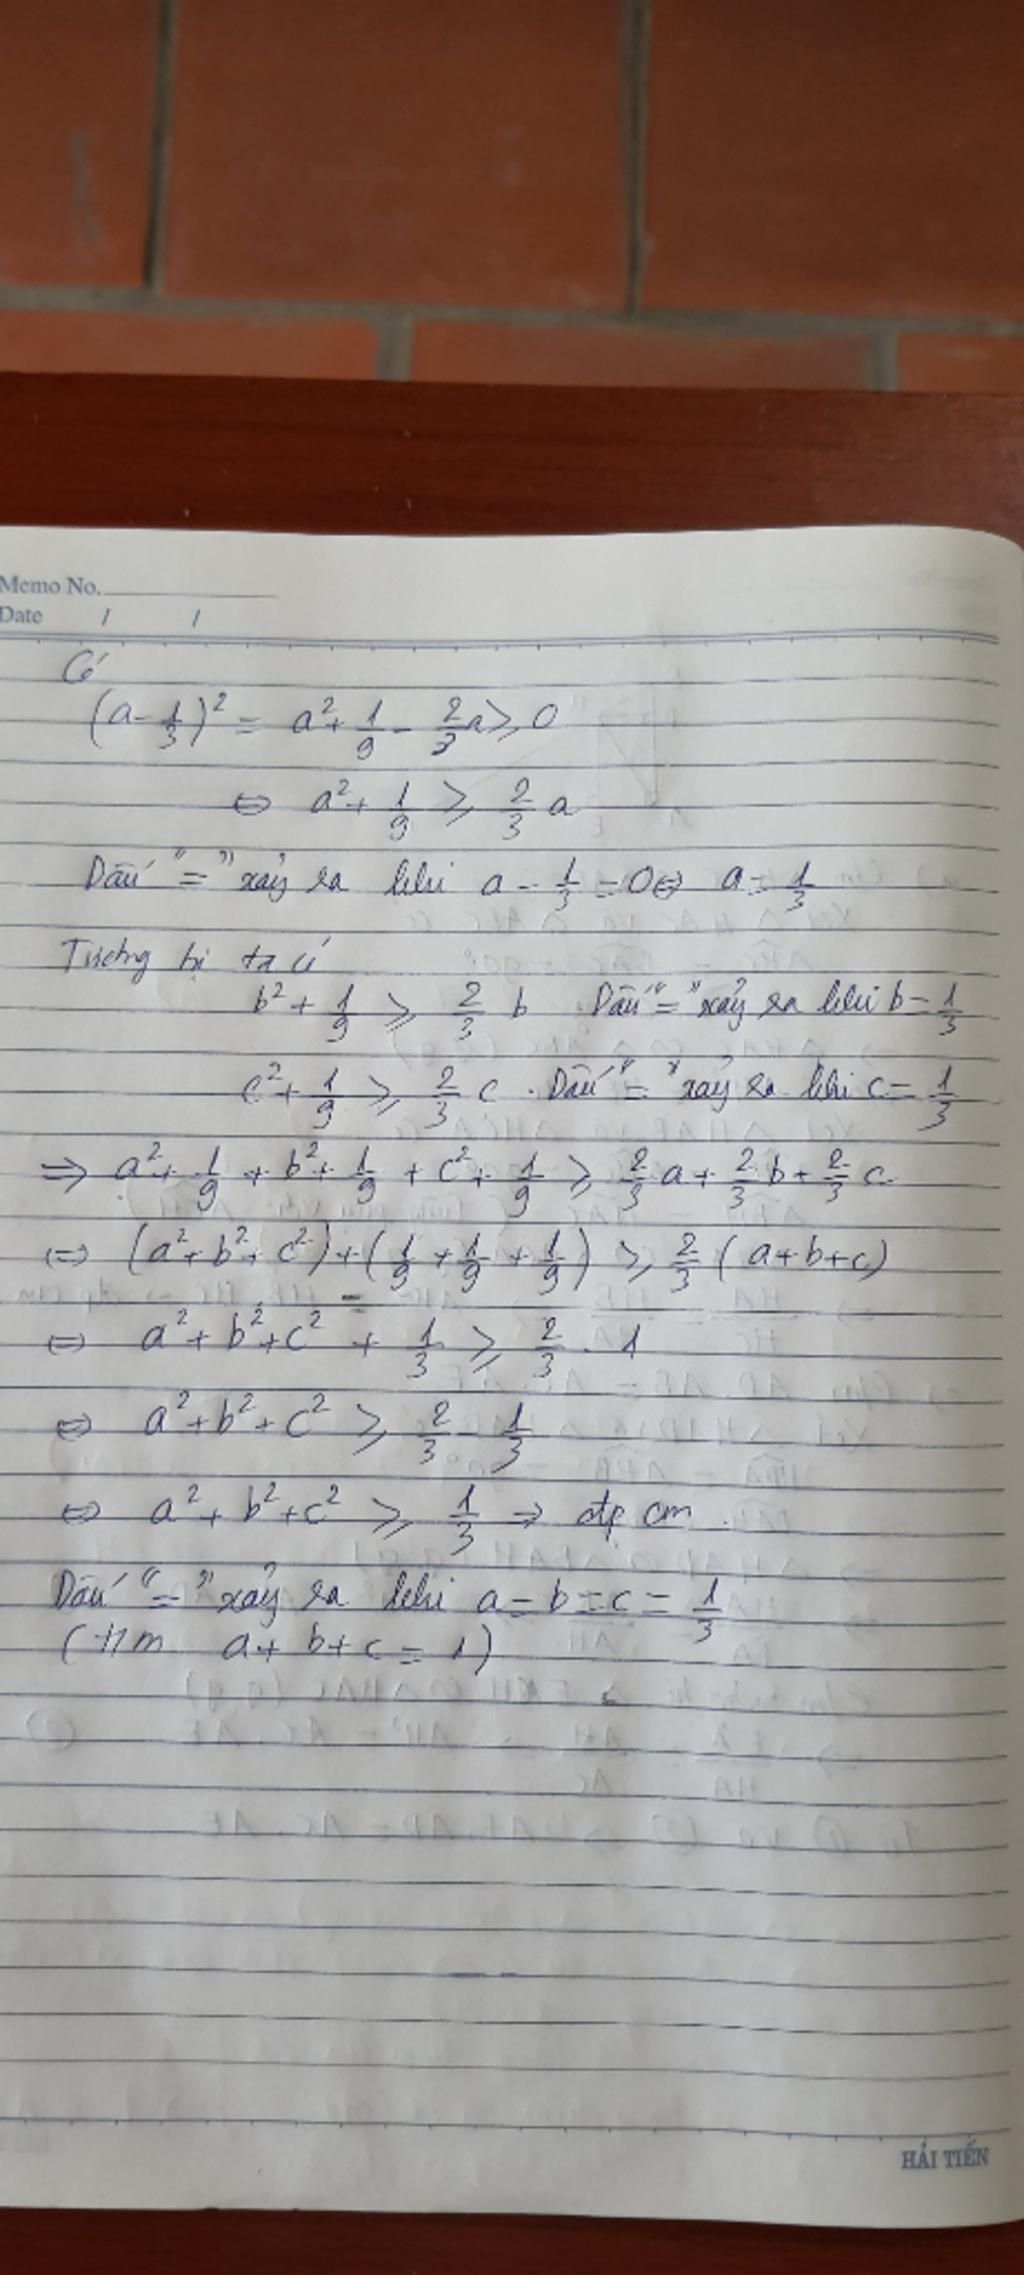 Memo No.
Date / /
Có
(a - 1/3)² = a² + 1/9 - 2/3 a ≥ 0
⇔ a² + 1/9 ≥ 2/3 a
Dấu "=" xảy ra khi a - 1/3 = 0 ⇔ a = 1/3
Tương tự ta có
b² + 1/9 ≥ 2/3 b Dấu "=" xảy ra khi b = 1/3
c² + 1/9 ≥ 2/3 c . Dấu "=" xảy ra khi c = 1/3
⇒ a² + 1/9 + b² + 1/9 + c² + 1/9 ≥ 2/3 a + 2/3 b + 2/3 c
⇔ (a² + b² + c²) + (1/9 + 1/9 + 1/9) ≥ 2/3 (a + b + c)
⇔ a² + b² + c² + 1/3 ≥ 2/3 . 1
⇔ a² + b² + c² ≥ 2/3 - 1/3
⇔ a² + b² + c² ≥ 1/3 ⇒ đpcm .
Dấu "=" xảy ra khi a = b = c = 1/3
(t/m a + b + c = 1)
HẢI TIẾN